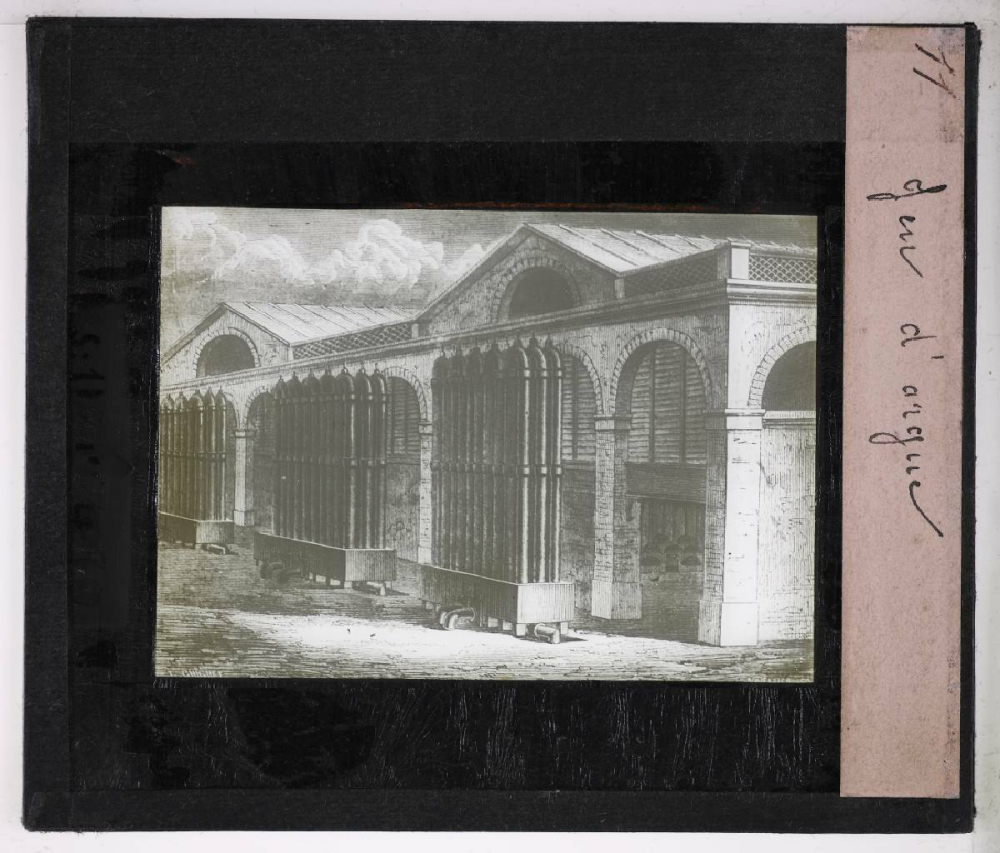 11
Jeu d'orgue